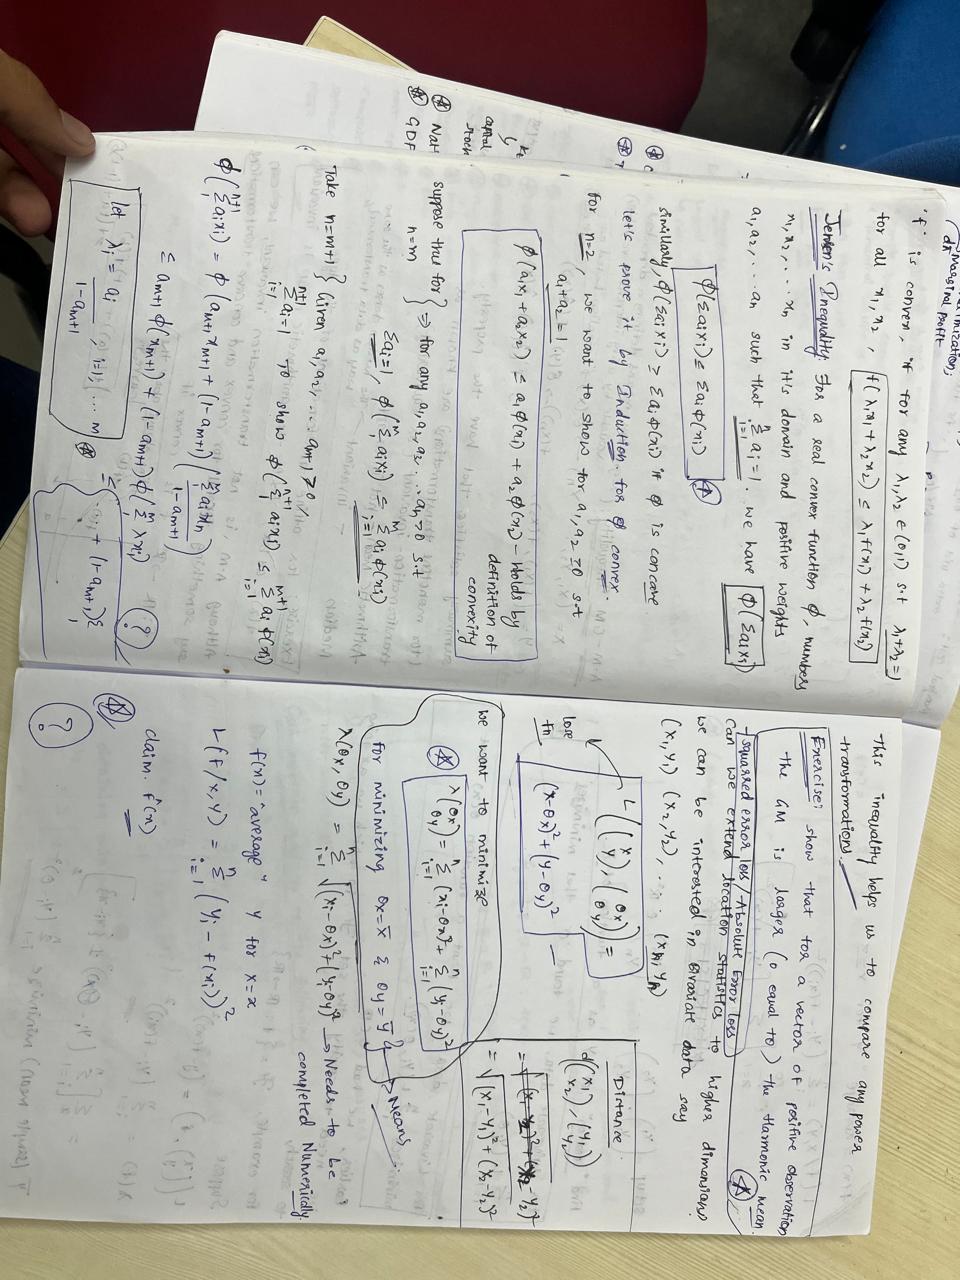 Marginal profit
'f' is convex, if for any λ₁,λ₂ ∈ (0,1) s.t λ₁+λ₂=1
for all x₁,x₂, f(λ₁x₁+λ₂x₂) ≤ λ₁f(x₁)+λ₂f(x₂)
Jensen's Inequality: For a real convex function ϕ, numbers
x₁,x₂,...xn in it's domain and positive weights
a₁,a₂,...an such that n Σ i=1 ai=1. we have ϕ(Σaixi)
ϕ(Σaixi) ≤ Σaiϕ(xi)
similarly, ϕ(Σaixi) ≥ Σaiϕ(xi) if ϕ is concave
let's prove it by Induction. for ϕ convex.
for n=2, we want to show for a₁,a₂ ≥0 s.t
a₁+a₂=1
ϕ(a₁x₁+a₂x₂) ≤ a₁ϕ(x₁)+a₂ϕ(x₂) - Holds by
definition of
convexity
suppose true for } ⇒ for any a₁,a₂,a₂...an>0 s.t
n=m
Σai=1, ϕ(m Σ 1 aixi) ≤ m Σ i=1 ai ϕ(xi)
Take n=m+1 } Given a₁,a₂,... am+1 ≥0,
n+1 Σ i=1 ai=1 To show ϕ(n+1 Σ 1 aixi) ≤ m+1 Σ i=1 ai ϕ(xi)
ϕ(n+1 Σ 1 aixi) = ϕ(am+1 xm+1 + (1-am+1)(Σ aixn / 1-am+1)
≤ am+1 ϕ(xm+1) + (1-am+1)ϕ(m Σ 1 λxi) ?
let λi = ai / 1-am+1, i=1, ... m
≤ ... + (1-am+1) Σ 1
capital
stock
GDP
This inequality helps us to compare any power
transformations.
Exercise: show that for a vector of positive observation
the GM is larger (o equal to) the Harmonic mean.
- squarred error loss / Absolute Error loss
can we extend location statistics to higher dimensions
we can be interested in Bivariate data say
(x₁,y₁) (x₂,y₂), ... (xn,yn)
L((x y), (θx θy)) =
(x-θx)²+(y-θy)² —
loss
fn
Distance
d((x₁ x₂), (y₁ y₂))
= √(x₁-y₁)²+(x₂-y₂)²
we want to minimize
λ(θx θy) = n Σ i=1 (xi-θx)² + n Σ i=1 (yi-θy)²
for minimizing θx=x̄ & θy=ȳ } → Means
λ(θx, θy) = n Σ i=1 √(xi-θx)²+(yi-θy)² → Needs to be
completed Numerically.
f(x)= "average" y for x=x
L(f/x,y) = n Σ i=1 (yi - f(xi))²
claim. f̂(x)
?